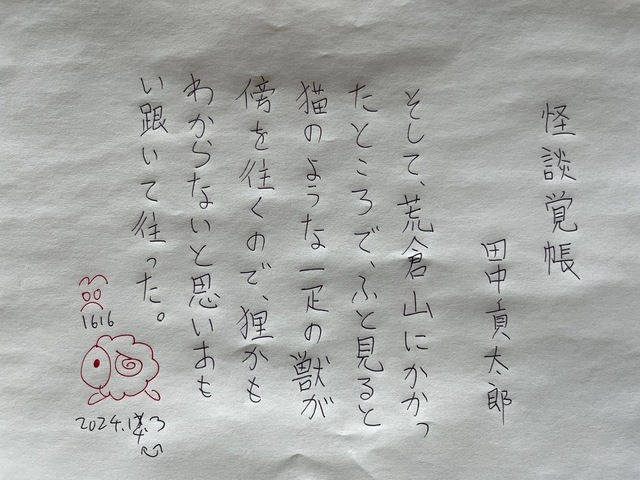 怪談覚帳
田中貢太郎
そして、荒倉山にかかっ
たところで、ふと見ると
猫のような一疋の獣が
傍を往くので、狸かも
わからないと思いおも
い跟いて往った。
1616
2024.